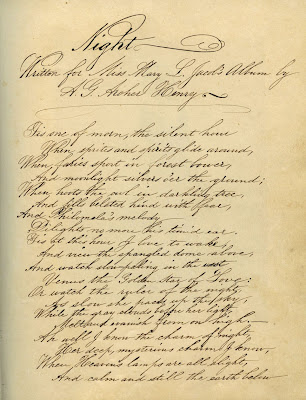 Night
Written for Miss Mary L. Jacob's Album by
A. G. Archer Henry.
'Tis one of morn, the silent hour
When sprites and spirits glide around,
When fairies sport in forest bower,
And moonlight silvers o'er the ground;
When hoots the owl in darkling tree,
And fills belated hind with fear,
And Philomela's melody
Delights no more this timid ear.
'Tis at this hour I love to wake,
And view the spangled dome above,
And watch slow-pating in the west
Venus the Golden star of Love:
Or watch the ruler of the night,
As slow she paces up the sky,
While the gray clouds before her light,
Melt and vanish from on high.
Ah well I know the charm of night,
Her deep, mysterious charm I know,
When Heaven's lamps are all alight,
And calm and still the earth below